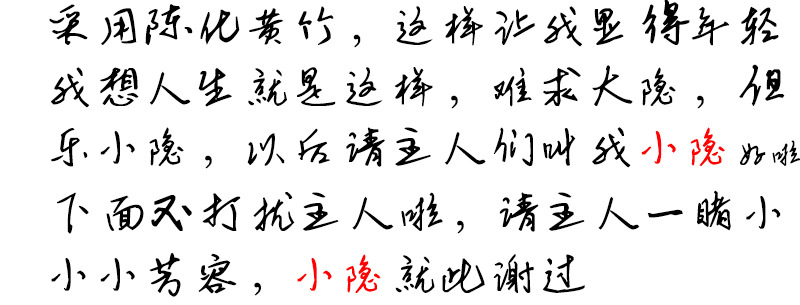 采用陈化黄竹，这样让我显得年轻
我想人生就是这样，难求大隐，但
乐小隐，以后请主人们叫我小隐好啦
下面不打扰主人啦，请主人一睹小
小小芳容，小隐就此谢过